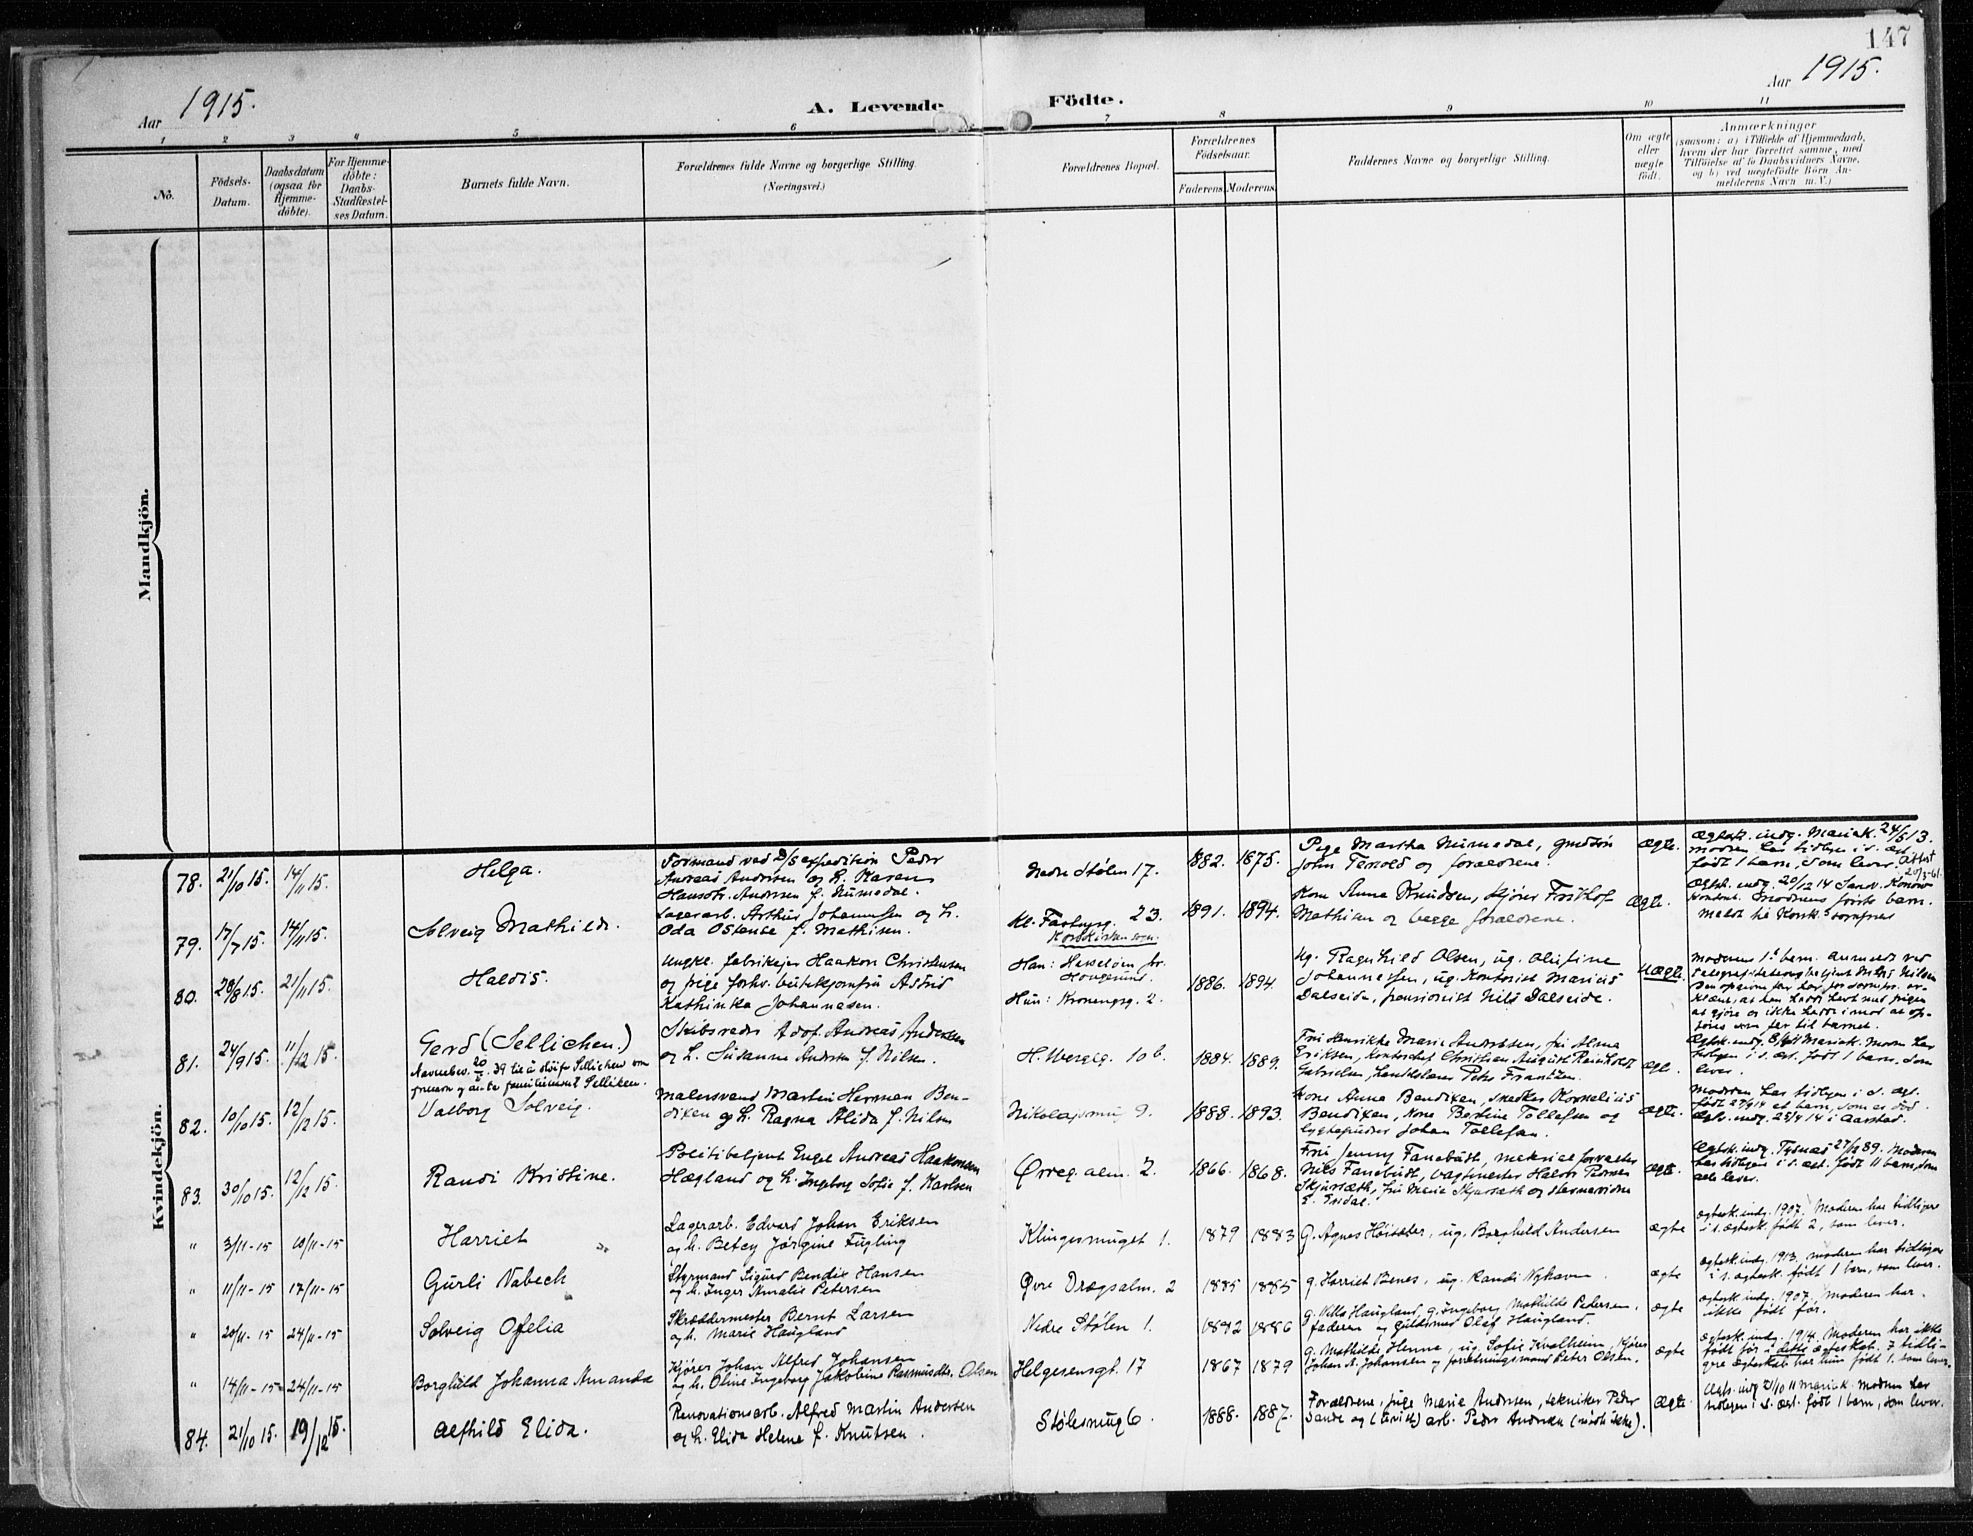 147
Aar 1915.
A. Levende Födte.
Aar 1915.
1 2 3 4 5 6 7 8 9 10 11
No.
Födsels-Datum.
Daabsdatum (ogsaa for Hjemme-döbte).
For Hjemme-döbte: Daabs-Stadfæstel-ses Datum.
Barnets fulde Navn.
Forældrenes fulde Navne og borgerlige Stilling.
(Næringsvei.)
Forældrenes Bopæl.
Forældrenes Födselsaar.
Faderens. Moderens.
Faddernes Navne og borgerlige Stilling.
Om ægte eller uægte födt.
Anmærkninger
(saasom: a) i Tilfælde af Hjemmedaab,
hvem der har forrettet samme, med
Tilföielse af to Daabsvidners Navne,
og b) ved uægtefödte Börn An-
melderens Navn m. V.)
Mandkjön.
Kvindekjön.
78. 21/10 15. 14/11 15. Helga.
Formand ved D/S expedition Peder
Andreas Andersen og h. Karen
Hansdtr. Andersen f. Numedal.
Nedre Stølen 17. 1882. 1875.
Pige Martha Numedal, gmdsøn
John Tervold og forældrene.
Ægte.
Ægtsk. indg. Mariak. 24/5 13.
Modren har tidligere i s. æst.
født 1 barn, som lever. Attest 20/3-61.
79. 17/7 15. 14/11 15. Solveig Mathilde.
Lagerarb. Arthur Johannessen og h.
Oda Ostense f. Mathisen.
Kl. Farberg. 23.
Korskirken sogn.
1891. 1894.
Kone Anna Knudsen, kjører Fridthof
Mathisen og begge forældrene.
Ægte.
Ægtsk. indg. 20/12 14 Sandv. Konow
kontrol. Modrens første barn.
Meldt til Korsk. sognepres
80. 28/8 15. 21/11 15. Haldis.
Ungkl. fabrikejer Haakon Christensen
og pige forhv. butikjomfru Astrid
Kathinka Johannesen.
Han: Hesseløen pr. Hovgesund.
Hun: Kroneng. 2.
1886. 1894.
Ug. Ragnhild Olsen, ug. Olufine
Johannessen, ug. kontorist Marius
Dalseide, pensionist Nils Dalseide.
Uægte.
Modrens 1ste barn. Anmeldt ved
telegrafistkongbetjent Nils Nilsen
Den opgivne far har for sognepr. er-
klært, at han havde havt med pigen
at gjøre og ikke havde imod at op-
føres som far til barnet.
81. 24/9 15. 11/12 15. Gerd (Sellichen.)
Navnebev. 20/11 39 til å sløife Sellichen som
fornavn og anta familienavnet Selliken.
Skibsreder Adof. Andreas Andersen
og h. Susanna Andersen f. Nilsen.
H. Wergeg. 10 b. 1884. 1889.
Fru Henrikke Marie Andersen, fru Alma
Eriksen, kontorchef Christian August Reinholdt
Gabrielsen, handelslærer Peter Frantzen.
Ægt.
Ægtsk. indg. 8/4 11 Mariak. Moren har
tidligere i s. æst. født 1 barn, som
lever.
82. 10/10 15. 12/12 15. Valborg Solveig.
Malersvend Martin Herman Ben-
dixen og h. Ragna Alida f. Nilsen
Nikolajsmug 9. 1888. 1893.
Kone Anna Bendixen, snedker Kornelius
Bendixen, kone Bertine Tollefsen og
lygtepudser Johan Tollefsen.
Ægte.
Modren har tidligere i s. æst.
født 27/9 14 et barn, som er død.
Ægts. indg. 25/4 14 i Aarstad.
83. 30/10 15. 12/12 15. Randi Kristine.
Politibetjent Engel Andreas Haakonsen
Hægland og h. Ingeborg Sofie f. Karlsen
Øvreg. alm. 2. 1866. 1868.
Fru Jenny Fanebust, materialforvalter
Nils Fanebust, vagtmester Halvor Perner
Skjersæth, fru Marie Skjersæth og
E. Isdal.
Ægte.
Ægtsk. indg. Tysnæs 27/12 89. Modren
har tidligere i s. æst. født 11 barn, som
alle lever.
" 3/11-15 10/11-15 Harriet
Lagerarb. Edvard Johan Eriksen
og h. Betsy Jørgine Fugling
Klingesmuget 1. 1879 1883
G. Agnes Høisæter, ug. Borghild Andersen
ægte
ægtesk. indg. 1907. Moderen har tidligere
i s. ægtesk. født 2, som lever.
" 11/11-15 17/11-15 Gurli Nabech
Styrmand Sigurd Bendix Hansen
og h. Inger Amalie Petersen
Øvre Drægsalm. 2 1885 1885
g. Harriet Benes, ug. Randi Nyhavn.
ægte
ægtesk. indg. 1913. Moderen har tidligere
i s. ægtesk. født 1 barn, som lever.
" 20/11-15 24/11-15 Solveig Ofelia
Skræddermester Bernt Larsen
og h. Marie Haugland
Nedre Stølen 1. 1882 1886
g. Nilla Haugland, g. Ingeborg Mathilde Petersen,
faderen og guldsmed Olaf Haugland.
ægte
ægtesk. indg. 1907. Moderen har
ikke født før.
" 14/11-15 24/11-15 Borghild Johanna Amanda
Kjører Johan Alfred Johansen
og h. Oline Ingeborg Jakobine Rasmusdtr. Olsen
Helgesensgt. 17 1867 1879
g. Mathilde Henne, ug. Sofie Kvalheim, kjører
Johan A. Johansen og forretningsmand Peter Olsen.
ægte
ægtesk. indg. 1914. Moderen har ikke
født før i dette ægteskab. I tidli-
gere ægteskab har hun født 1, som lever.
84. 21/10 15. 19/12 15. Alfhild Elida.
Renovationsarb. Alfred Martin Andersen
og h. Elida Helene f. Knutsen.
Stølesmug 6. 1888. 1887.
Forældrene, pige Marie Andersen, tekniker Peder
Sande og arb. Peder Andersen (mødt ikke).
Ægte.
Ægts. indg. 21/10 11 Mariak. Modren har
tidligere i s. æst. født 1 barn, som lever.